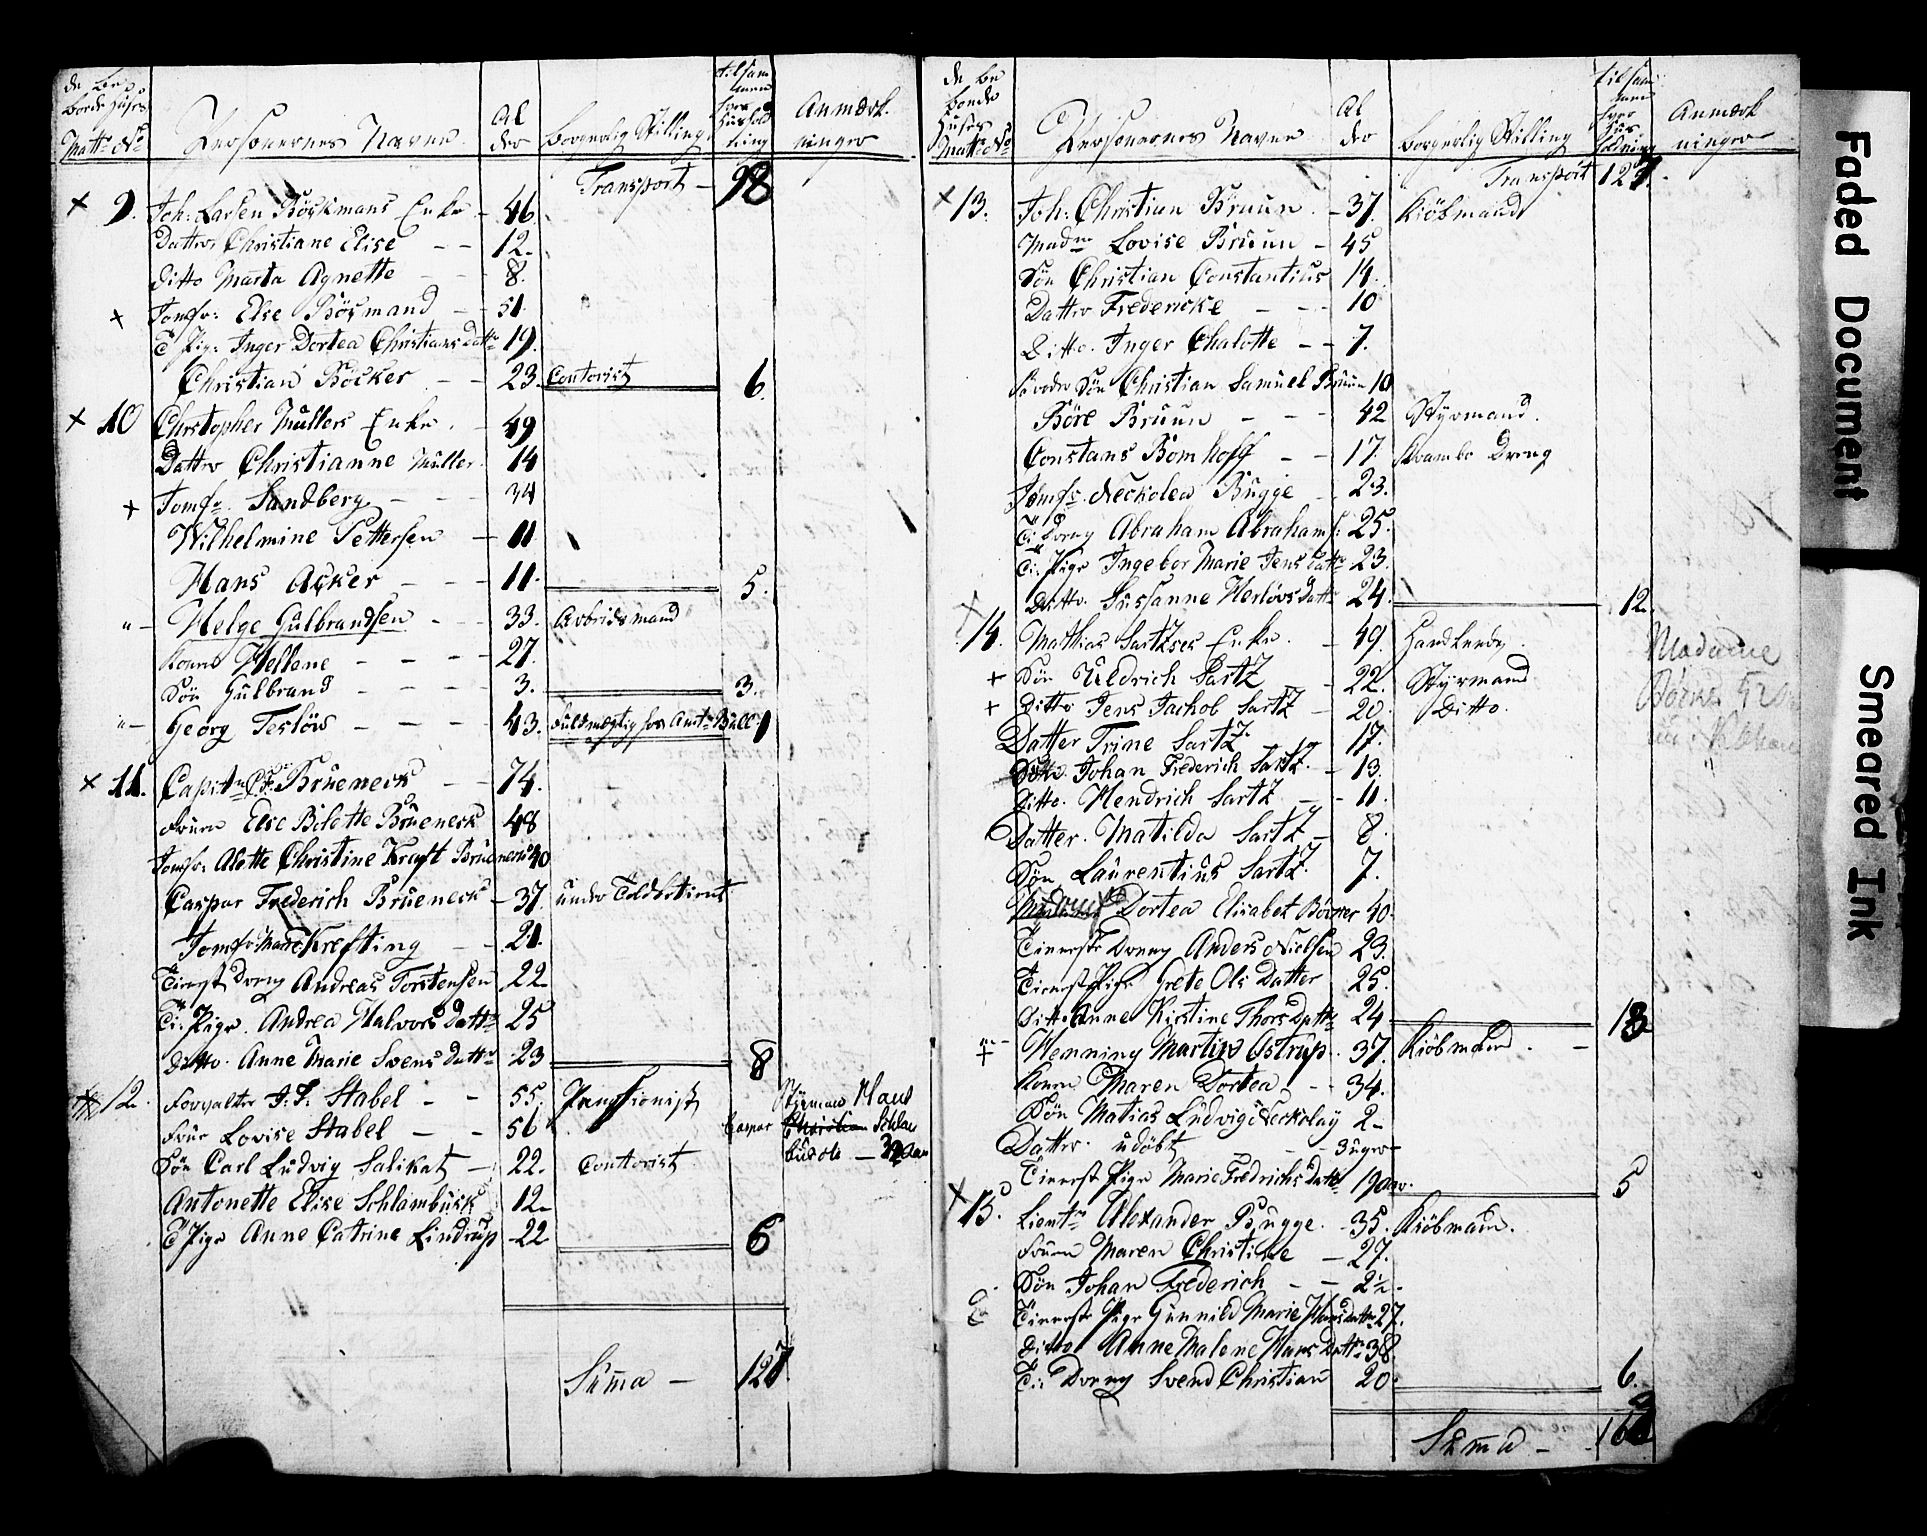 de be
boede Huses
Matr: No
Personernes Navne
Al
der
borgerlig Stilling
tilsam
men
hver
Hushold
ning
Anmærk
ninger
Transport - 98
× 9. Joh: Larsen Böckmans Enke - 46.
Datter Christiane Elise - - 12.
ditto Marta Agnette - - 8.
+ Jomfr: Else Bösmand - - 51
T Pige Inger Dortea Christians Dattr 19.
Christian Böcker - - 23. Contorist 6.
× 10 Christopher Müllers Enke. - 49
Datter Christianne Müller. 14
+ Jomfr. Sandberg - - 34
Wilhelmine Pettersen - 11
Hans Acker - - - 11. 5.
"- Helge Gulbrandsen - - 33. Arbeidsmand
Kone Hellene - - - 27.
Sön Gulbrand - - - 3. 3.
"- Georg Teslöw - - - 43. Fuldmægtig hos Amtm Bull 1
× 11. Capitn Brüeneck - - 74.
Fruen Else Bolette Brüeneck 48
Jomfr: Alette Christine Kraft Brüeneck 40
Caspar Frederich Brüeneck - 37. under Toldbetient
Jomfr Marie Krefting - - 21.
Tienest Dreng Andreas Torstensen 22
Ti: Pige. Andrea Halvors Dattr 25
Ditto. Anne Marie Svens Dattr 23 8
× 12. Forvalter J. F. Stabel - - 55. Pensionist Styrmand Hans
Frue Lovise Stabel - - 56 Caspar Christian Schlam
Sön Carl Ludvig Salikat - 22. Contorist. busch - 32 Aar
Antonette Elise Schlambusk 12.
T Pige Anne Catrine Lindrup - 22 6
Suma - 127
de be
boende
Huses
Matr: No
Personernes Navne
Al
der
borgerlig Stilling
tilsam
men
hver
Hus
holdning
Anmærk
ninger
Transport 127.
× 13. Joh: Christian Bruun. - 37. Kiöbmand
Madm Lovise Bruun - 45
Sön Christian Constantius 14.
Datter Fredericke - - - 10
Ditto. Inger Chalotte - - 7.
Broder Sön Christian Samuel Bruun 10
Böre Bruun - - - 42 Styrmand.
Constans Bomhoff - - 17. Kramboe Dreng
Jomfr. Neckolea Bugge - 23.
Ti Dreng Abraham Abrahams: 25.
Ti: Pige Ingebor Marie Jens Dattr 23.
Ditto. Susanne Herlövs Dattr 24. 12.
× 14. Mathias Sartzes Enke. - 49. Handlende
+ Sön Uldrich Sartz - 22. Styrmand
+ Ditto Jens Jachob Sartz - 20. Ditto.
Datter Trine Sartz. 17.
Sön. Johan Frederich Sartz. - 13.
Ditto. Hendrich Sartz - - 11.
Datter. Matilda Sartz - 8.
Sön Laurentius Sartz. 7.
Dortea Elisabet Börner 40.
Tieneste Dreng Anders Nielsen 23.
Tienest Pige Grete Ols Datter 25.
Ditto Anne Kirstine Thors Dattr 24 13
Madame
+ Henning Martin Ostrup. - 37. Kiöbmand. -
Kone Maren Dortea. - - 34.
Sön Matias Ludvig Neckolay 2 -
Datter. udöbt - - 3 uger -
Tienest Pige Marie Fredrichs Dattr 19 aar. 5
× 15. Lieutn Alexander Bugge. - 35. Kiöbmand.
Fruen Maren Christine - 27.
Sön Johan Frederich - - 2½ -
Tieneste Pige Gunnild Marie Hansdatter 27.
Ditto Anne Malene Hans Dattr 38.
Ti: Dreng Svend Christian 20 6.
Suma - -
Faded Document
Smeared Ink